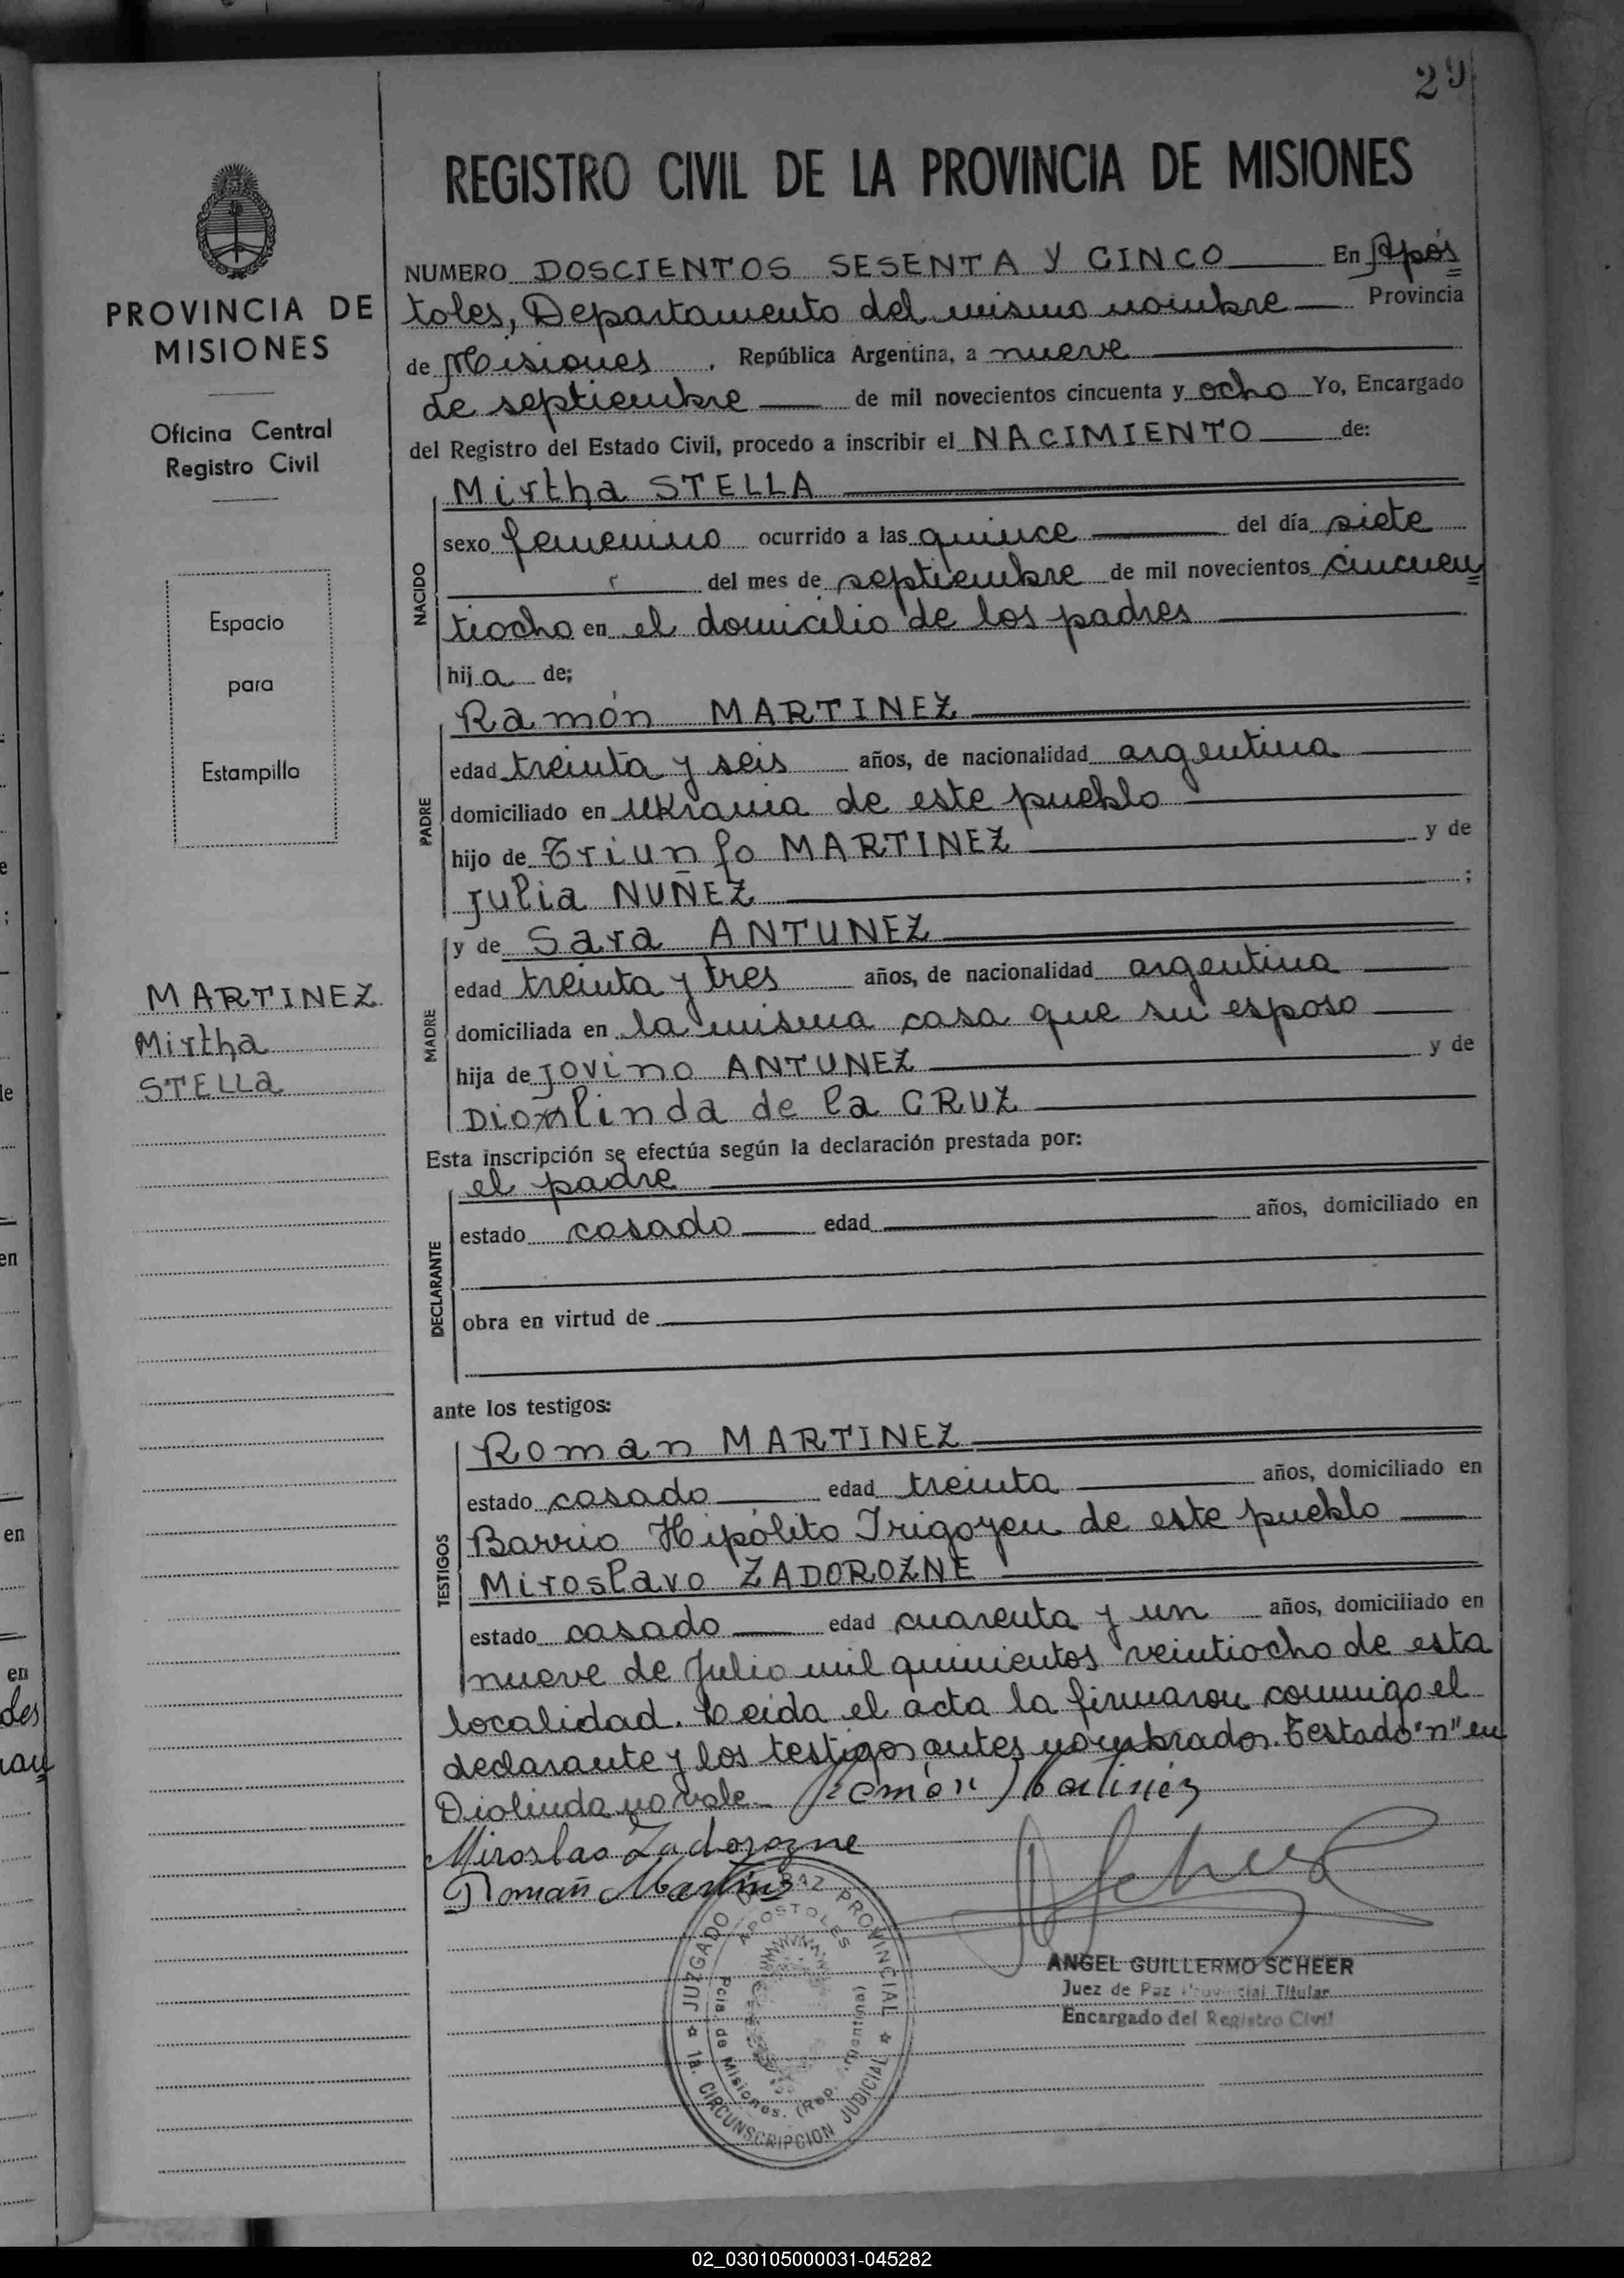 29
REGISTRO CIVIL DE LA PROVINCIA DE MISIONES
PROVINCIA DE
MISIONES
Oficina Central
Registro Civil
Espacio
para
Estampilla
MARTINEZ
Mirtha
STELLA
NUMERO DOSCIENTOS SESENTA Y CINCO En Após
toles, Departamento del mismo nombre Provincia
de Misiones, República Argentina, a nueve
de septiembre de mil novecientos cincuenta y ocho Yo, Encargado
del Registro del Estado Civil, procedo a inscribir el NACIMIENTO de:
NACIDO
Mirtha STELLA
sexo femenino ocurrido a las quince del día siete
del mes de septiembre de mil novecientos cincuen
tiocho en el domicilio de los padres
hija de;
PADRE
Ramón MARTINEZ
edad treinta y seis años, de nacionalidad argentina
domiciliado en Ukrania de este pueblo
hijo de Triunfo MARTINEZ y de
Julia NUÑEZ ;
MADRE
y de Sara ANTUNEZ
edad treinta y tres años, de nacionalidad argentina
domiciliada en la misma casa que su esposo
hija de Jovino ANTUNEZ y de
Dionlinda de la CRUZ
Esta inscripción se efectúa según la declaración prestada por:
DECLARANTE
el padre
estado casado edad años, domiciliado en
obra en virtud de
ante los testigos:
TESTIGOS
Roman MARTINEZ
estado casado edad treinta años, domiciliado en
Barrio Hipólito Irigoyen de este pueblo
Miroslavo ZADOROZNE
estado casado edad cuarenta y un años, domiciliado en
nueve de Julio mil quinientos veintiocho de esta
localidad. Leida el acta la firmaron conmigo el
declarante y los testigos antes nombrados. Testado "n" en
Diolinda no vale. Ramón Martinez
Miroslao Zadorozne
Román Martinez
JUZGADO DE PAZ PROVINCIAL
APOSTOLES
Pcia. de Misiones. (Rep. Argentina)
1a. CIRCUNSCRIPCION JUDICIAL
ANGEL GUILLERMO SCHEER
Juez de Paz Provincial Titular
Encargado del Registro Civil
02_030105000031-045282